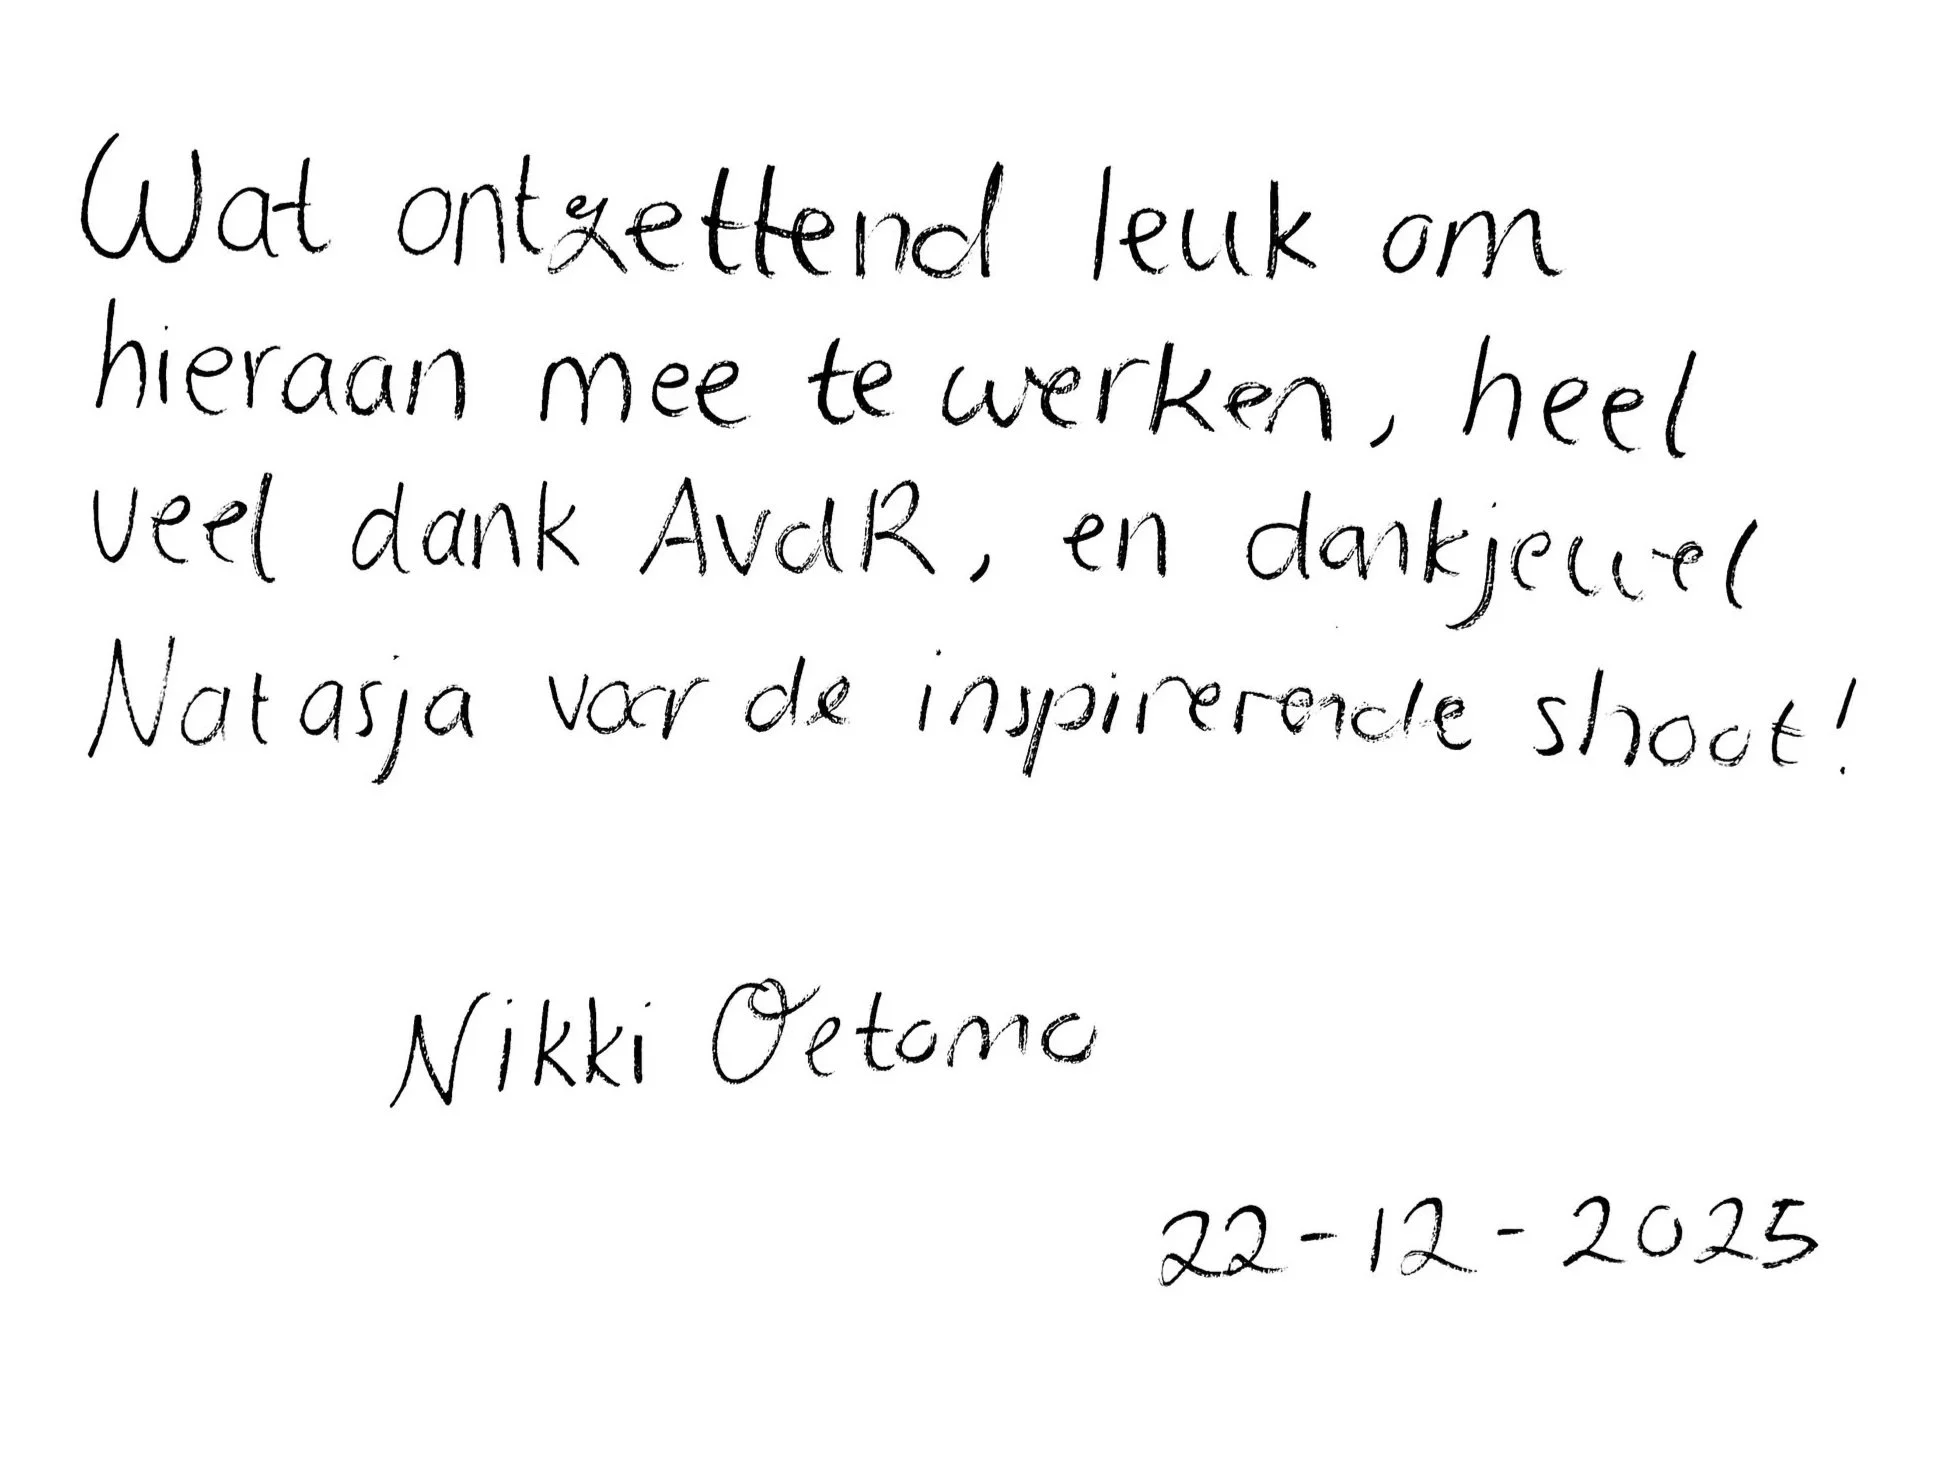 Wat ontzettend leuk om
hieraan mee te werken, heel
veel dank AvdR, en dankjewel
Natasja voor de inspirerende shoot!
Nikki Oetomo
22-12-2025